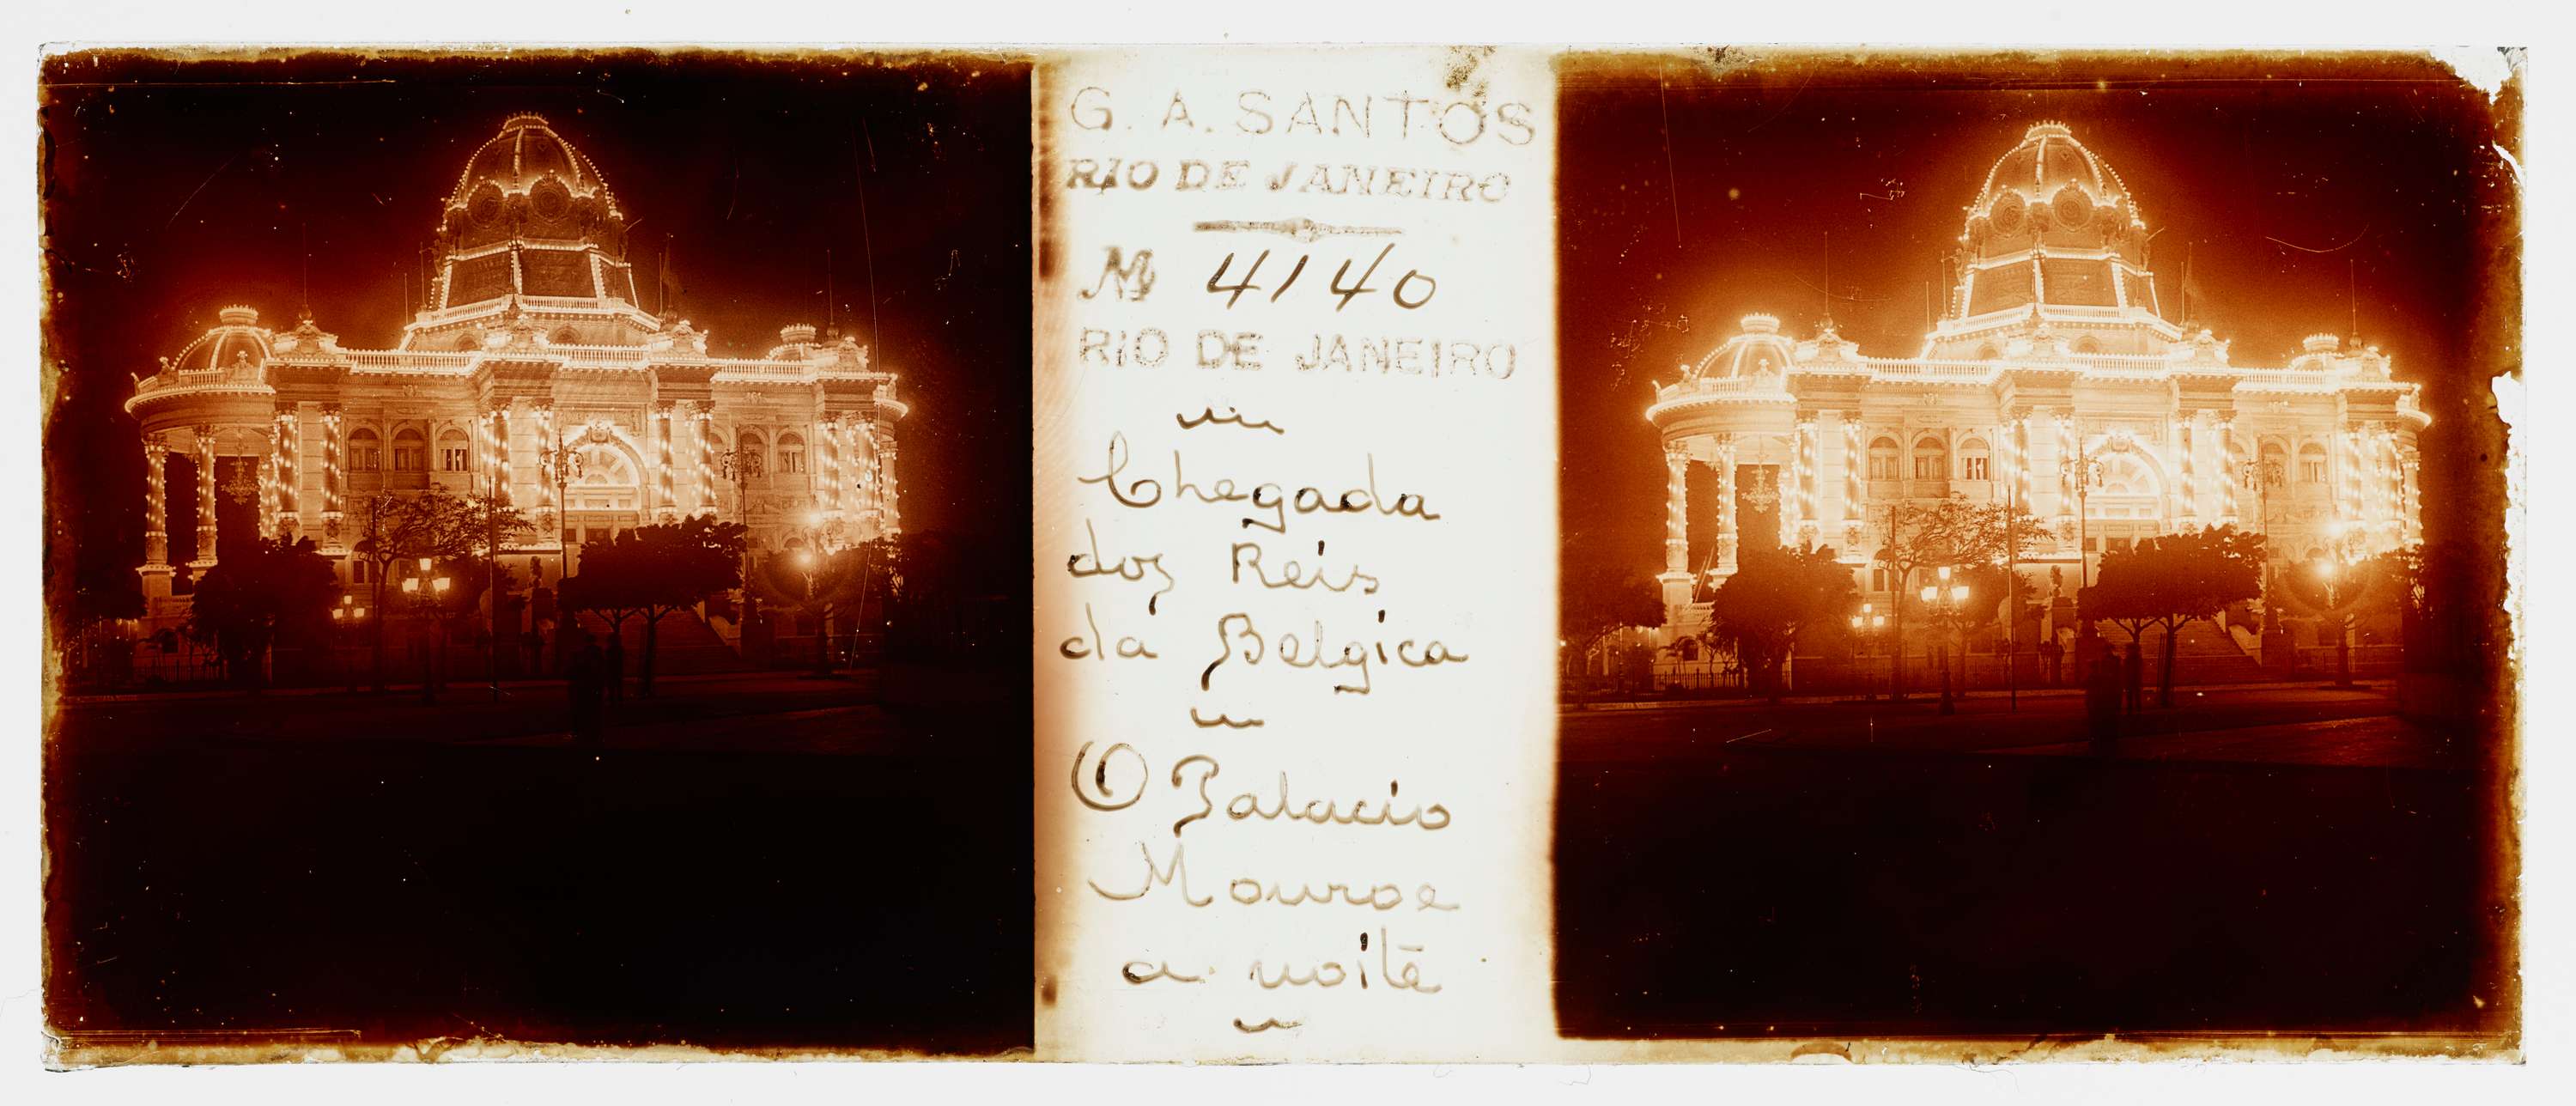 G. A. SANTOS
RIO DE JANEIRO
Nº 4140
RIO DE JANEIRO
Chegada
dos Reis
da Belgica
O Palacio
Monroe
a noite